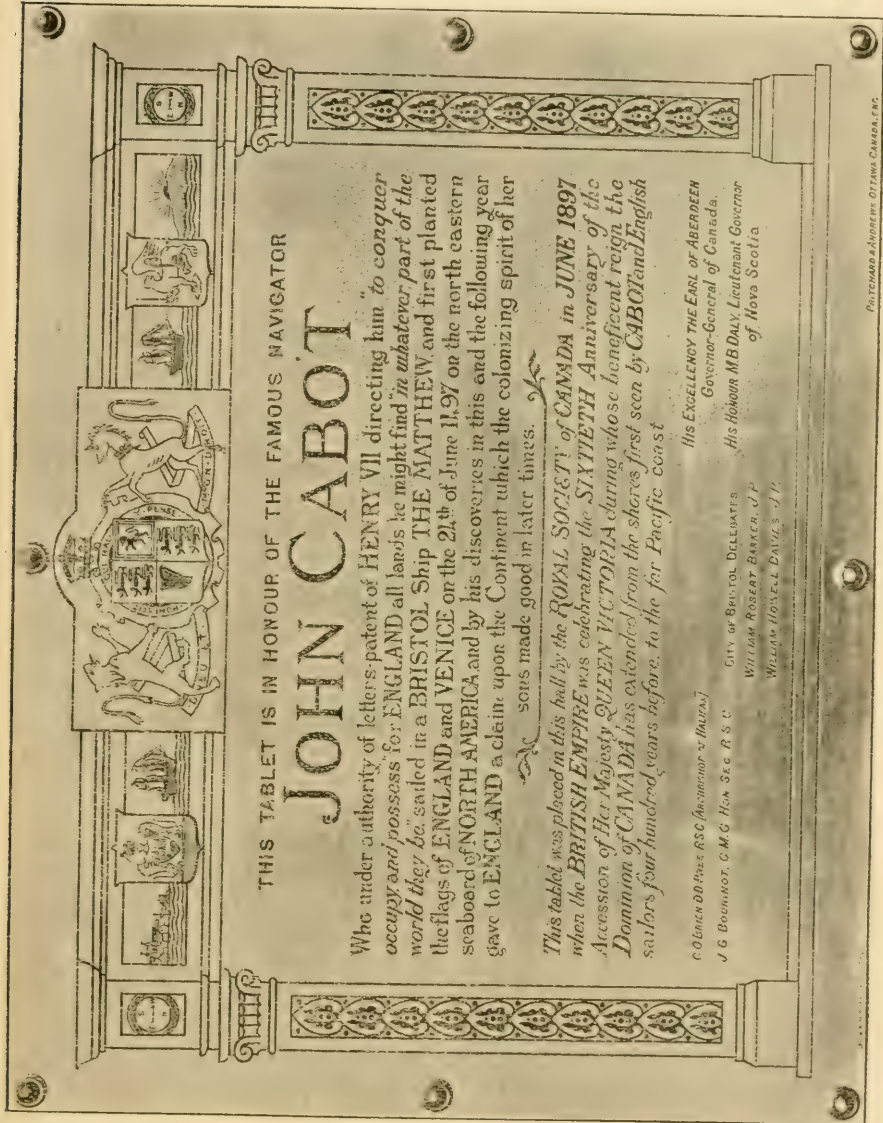 HONI SOIT QUI MAL Y PENSE
DIEU ET MON DROIT
THIS TABLET IS IN HONOUR OF THE FAMOUS NAVIGATOR
JOHN CABOT
Who under authority of letters-patent of HENRY VII directing him "to conquer
occupy and possess" for ENGLAND all lands he might find "in whatever part of the
world they be," sailed in a BRISTOL Ship THE MATTHEW, and first planted
the flags of ENGLAND and VENICE on the 24th of June 1497 on the north eastern
seaboard of NORTH AMERICA and by his discoveries in this and the following year
gave to ENGLAND a claim upon the Continent which the colonizing spirit of her
sons made good in later times.
This tablet was placed in this hall by the ROYAL SOCIETY of CANADA in JUNE 1897
when the BRITISH EMPIRE was celebrating the SIXTIETH Anniversary of the
Accession of Her Majesty QUEEN VICTORIA during whose beneficent reign the
Dominion of CANADA has extended from the shores first seen by CABOT and English
sailors four hundred years before, to the far Pacific coast
C. O'BRIEN D D PRES RSC [ARCHBISHOP of HALIFAX]
J G BOURINOT, C.M.G HON SEC R S C
CITY OF BRISTOL DELEGATES
WILLIAM ROBERT BARKER, J P
WILLIAM HOWELL DAVIES J P.
HIS EXCELLENCY THE EARL OF ABERDEEN
Governor-General of Canada.
HIS HONOUR M.B.DALY, Lieutenant Governor
of Nova Scotia
PRITCHARD & ANDREWS OTTAWA CANADA. ENG.